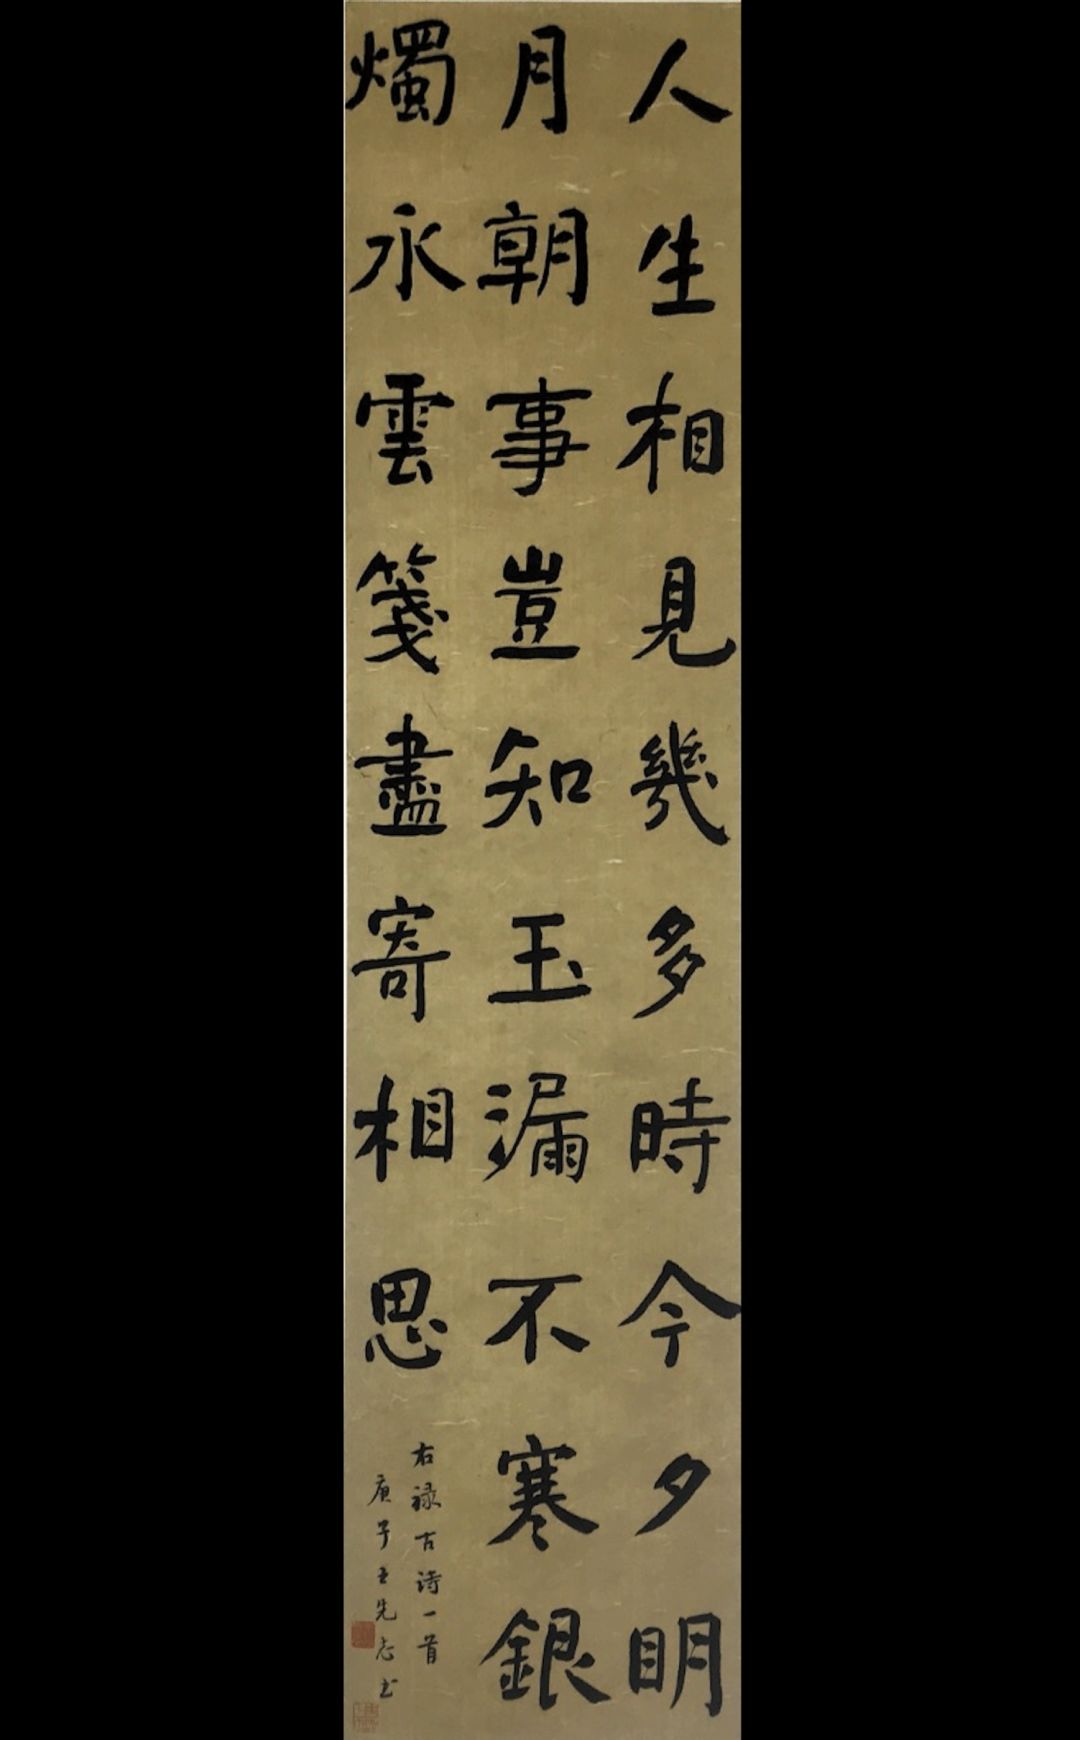 人生相見幾多時今夕明
月朝事豈知玉漏不寒銀
燭永雲箋盡寄相思
右禄古诗一首
庚子王先志书